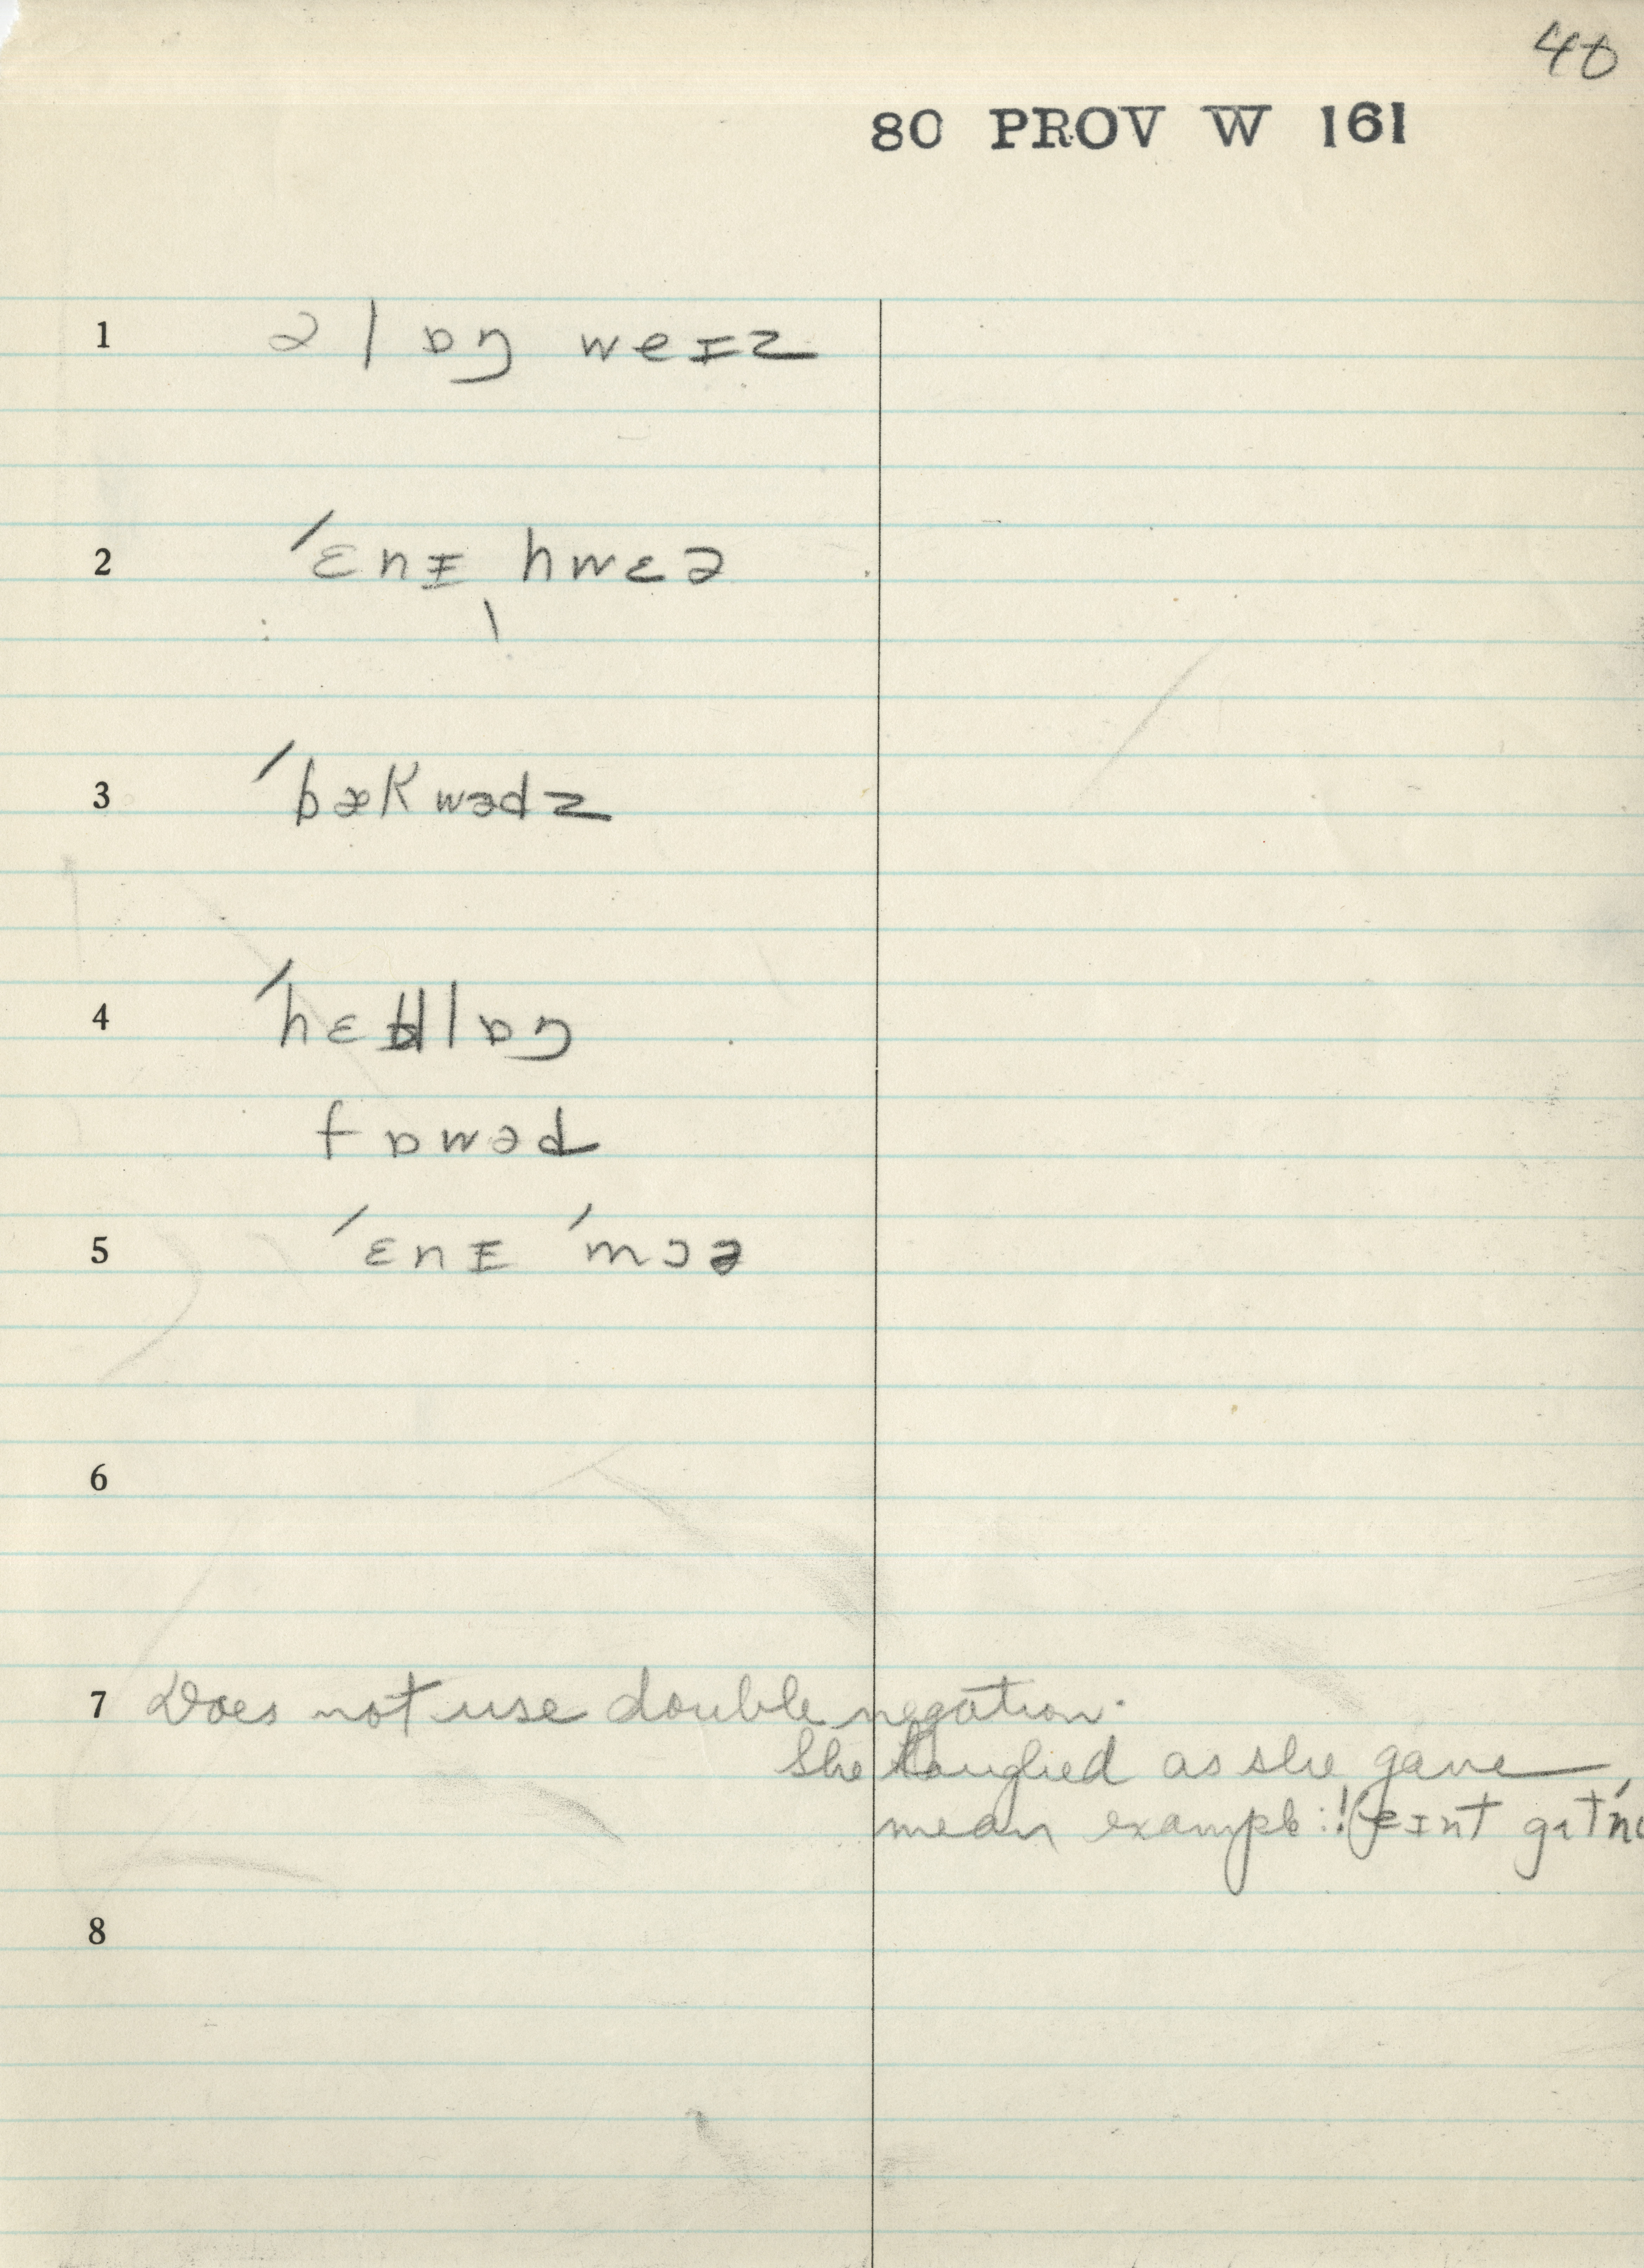 40
80 PROV W 161
1 ə l ɒŋ weɪz
2 ˈɛnɪ hwɛə
3 ˈbækwədz
4 ˈhɛdlɒŋ
fɒwəd
5 ˈɛnɪ ˈmɔə
6
7 Does not use double negation.
She laughed as she gave
mean example: eɪnt gɪt
8